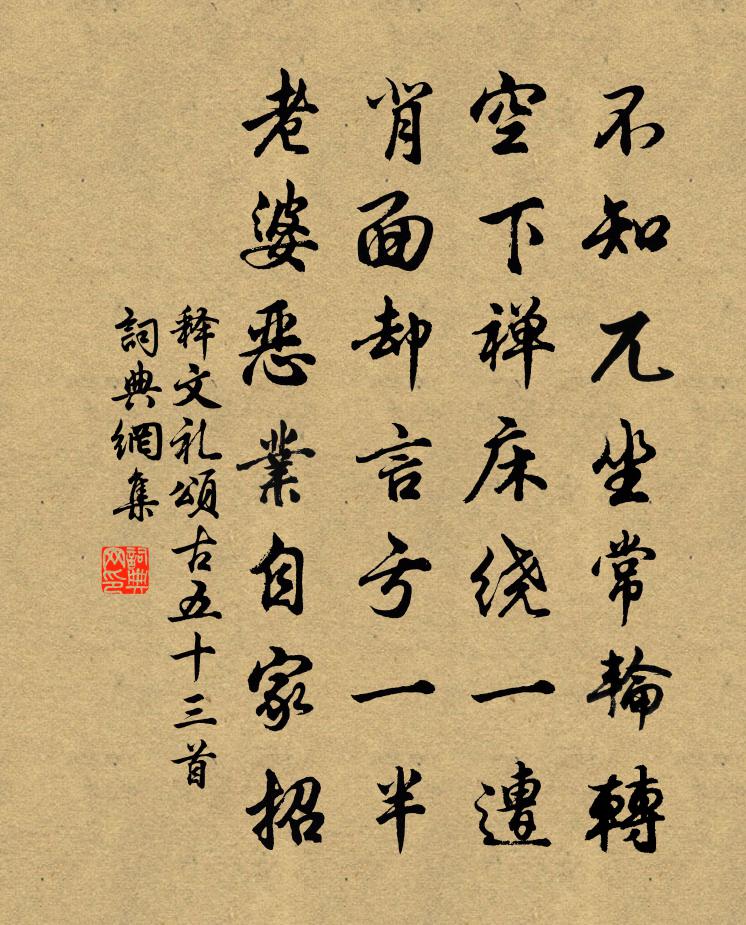 不知兀坐常輪轉
空下禅床绕一遭
背面却言亏一半
老婆恶業自家招
释文礼頌古五十三首
詞典網集
詞典网印